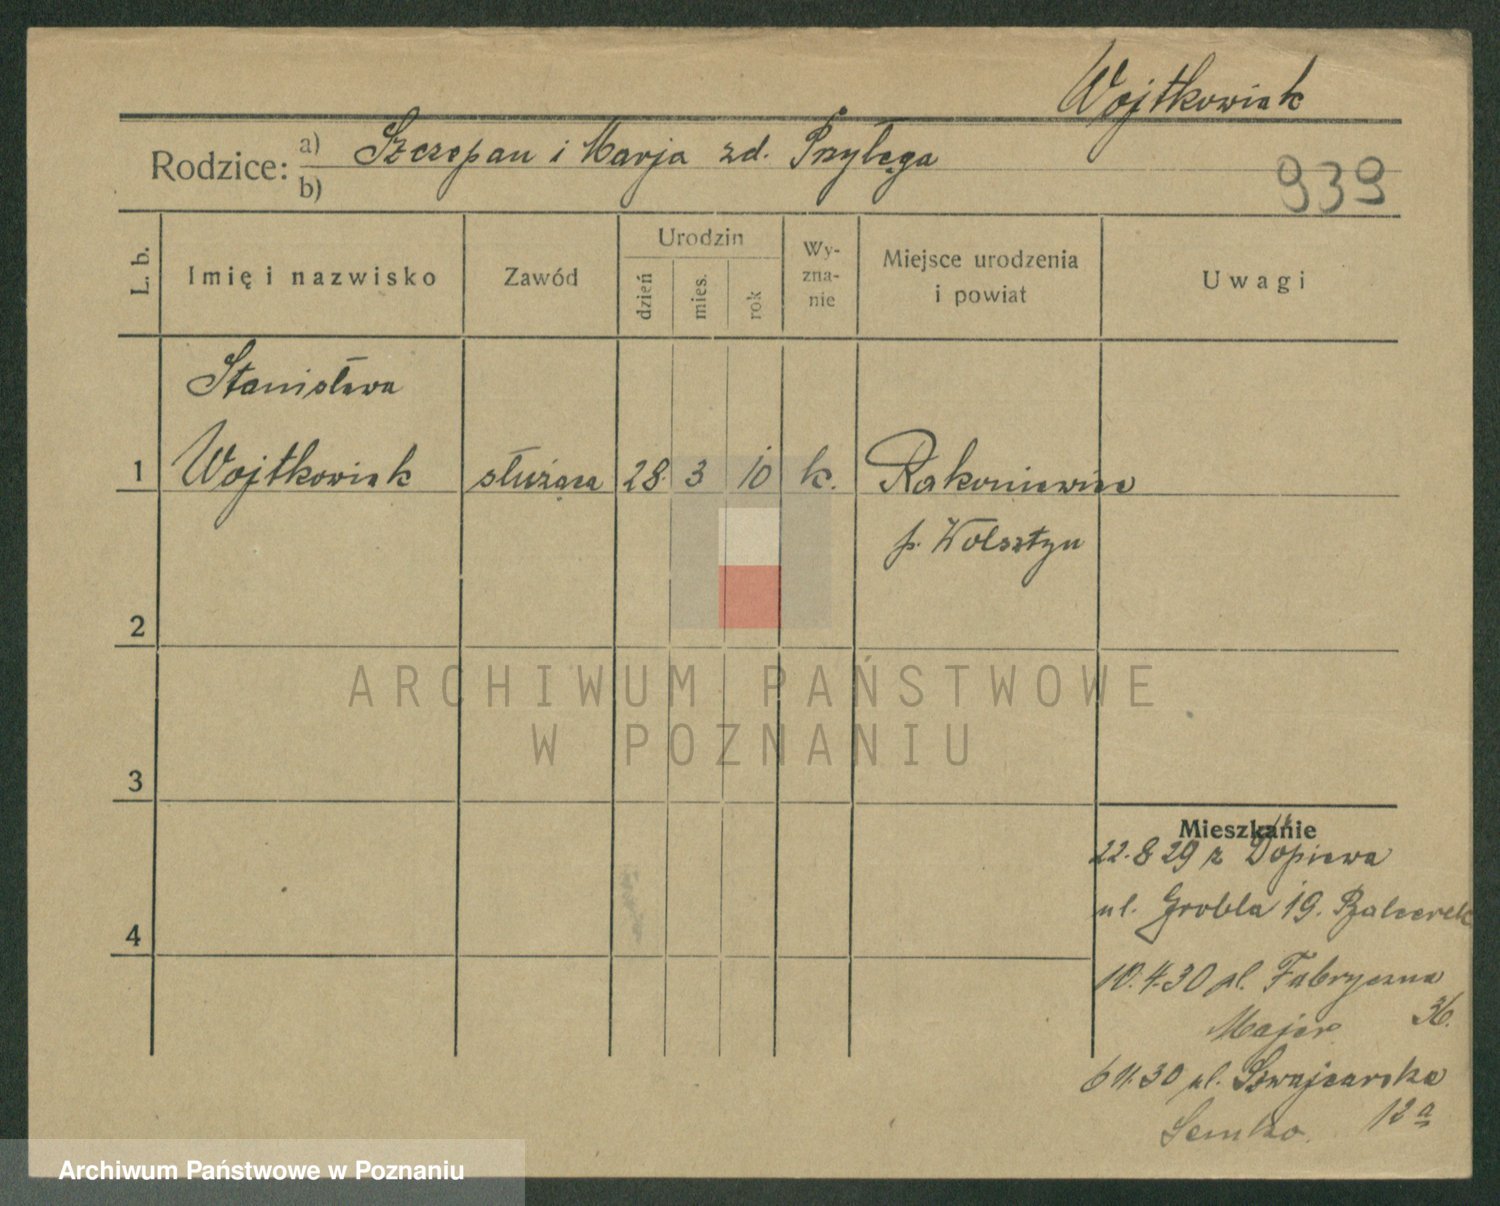 Wojtkowiak
Rodzice: a) Szczepan i Marja zd. Przyłęga
b)
939
L. b.
Imię i nazwisko
Zawód
Urodzin
dzień
mies.
rok
Wy-
zna-
nie
Miejsce urodzenia
i powiat
Uwagi
Stanisława
1 Wojtkowiak służąca 28. 3 10 k. Rakoniewice
p. Wolsztyn
2
3
4
Mieszkanie
22.8 29 z Dopiewa
ul. Grobla 19.
10.4.30 ul. Fabryczna
36.
Majer
6 11.30 ul. Szwajcarska
12 a
ARCHIWUM PAŃSTWOWE
W POZNANIU
Archiwum Państwowe w Poznaniu